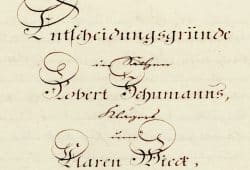 Entscheidungsgründe
in Sachen
Robert Schumanns,
Klägers
und
Claren Wieck,